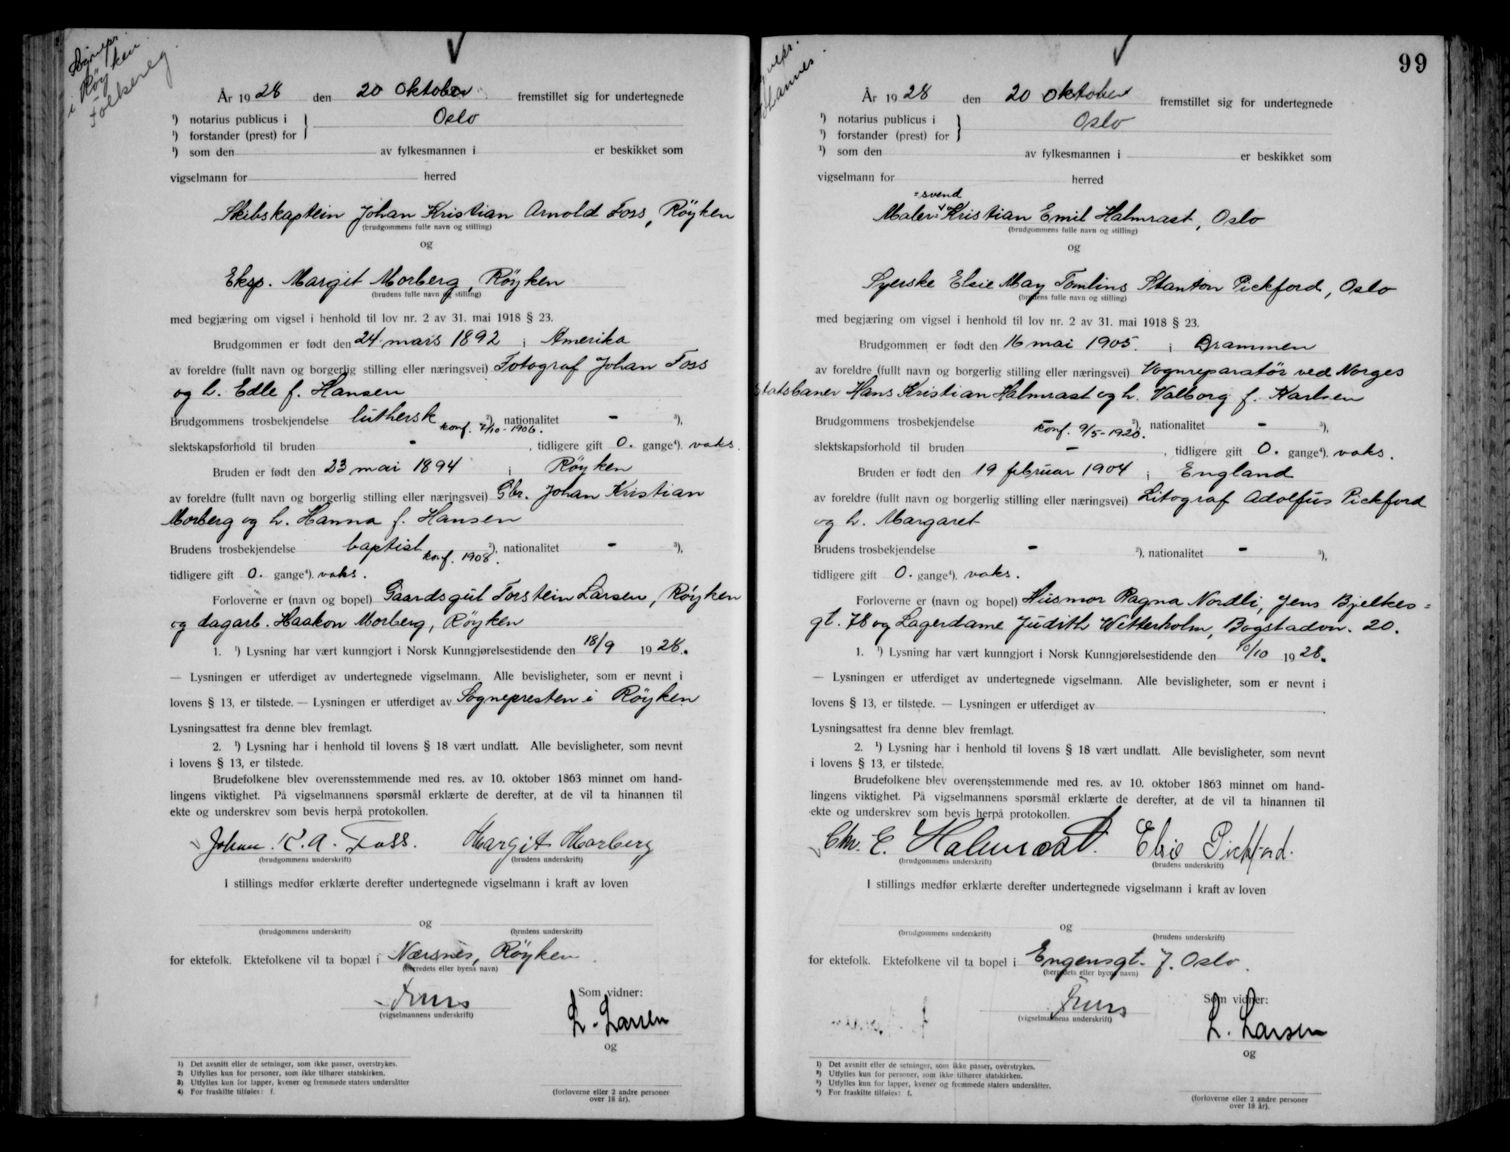 i Røyken
Folkereg
År 1928 den 20 Oktober fremstillet sig for undertegnede
¹) notarius publicus i
¹) forstander (prest) for } Oslo
¹) som den av fylkesmannen i er beskikket som
vigselmann for herred
Skibskaptein Johan Kristian Arnold Foss, Røyken
(brudgommens fulle navn og stilling)
og
Eksp. Margit Morberg, Røyken
(brudens fulle navn og stilling)
med begjæring om vigsel i henhold til lov nr. 2 av 31. mai 1918 § 23.
Brudgommen er født den 24 mars 1892 i Amerika
av foreldre (fullt navn og borgerlig stilling eller næringsvei) Fotograf Johan Foss
og h. Edle f. Hansen
Brudgommens trosbekjendelse luthersk konf. 7/10-1906. ²), nationalitet - ³),
slektskapsforhold til bruden - , tidligere gift 0. gange⁴). vaks.
Bruden er født den 23 mai 1894 i Røyken
av foreldre (fullt navn og borgerlig stilling eller næringsvei) Gbr. Johan Kristian
Morberg og h. Hanna f. Hansen
Brudens trosbekjendelse baptist konf. 1908. ²), nationalitet - ³),
tidligere gift 0. gange⁴). vaks.
Forloverne er (navn og bopel) Gaardsgut Torstein Larsen, Røyken
og dagarb. Haakon Morberg, Røyken
1. ¹) Lysning har vært kunngjort i Norsk Kunngjørelsestidende den 18/9 1928.
— Lysningen er utferdiget av undertegnede vigselmann. Alle bevisligheter, som er nevnt i
lovens § 13, er tilstede. — Lysningen er utferdiget av Sognepresten i Røyken
Lysningsattest fra denne blev fremlagt.
2. ¹) Lysning har i henhold til lovens § 18 vært undlatt. Alle bevisligheter, som nevnt
i lovens § 13, er tilstede.
Brudefolkene blev overensstemmende med res. av 10. oktober 1863 minnet om hand-
lingens viktighet. På vigselmannens spørsmål erklærte de derefter, at de vil ta hinannen til
ekte og underskrev som bevis herpå protokollen.
Johan. K. A. Foss. Margit Morberg
(brudgommens underskrift) (brudens underskrift)
I stillings medfør erklærte derefter undertegnede vigselmann i kraft av loven
og
(brudgommens underskrift) (brudens underskrift)
for ektefolk. Ektefolkene vil ta bopæl i Nærsnes, Røyken.
(herredets eller byens navn)
Som vidner:
(vigselmannens underskrift)
L. Larsen
og
¹) Det avsnitt eller de setninger, som ikke passer, overstrykes.
²) Utfylles kun for personer, som ikke tilhører statskirken.
³) Utfylles kun for lapper, kvener og fremmede staters undersåtter
⁴) For fraskilte tilføies: f.
(forloverne eller 2 andre personer
over 18 år).
99
År 1928 den 20 Oktober fremstillet sig for undertegnede
¹) notarius publicus i
¹) forstander (prest) for } Oslo
¹) som den av fylkesmannen i er beskikket som
vigselmann for herred
=svend
Maler Kristian Emil Halmrast, Oslo
(brudgommens fulle navn og stilling)
og
Syerske Elsie May Tomlins Stanton Pickford, Oslo
(brudens fulle navn og stilling)
med begjæring om vigsel i henhold til lov nr. 2 av 31. mai 1918 § 23.
Brudgommen er født den 16 mai 1905. i Drammen
av foreldre (fullt navn og borgerlig stilling eller næringsvei) Vognreparatør ved Norges
statsbaner Hans Kristian Halmrast og h. Valborg f. Karlsen
Brudgommens trosbekjendelse konf. 9/5-1920. ²), nationalitet - ³),
slektskapsforhold til bruden - , tidligere gift 0. gange⁴). vaks.
Bruden er født den 19 februar 1904 i England
av foreldre (fullt navn og borgerlig stilling eller næringsvei) Litograf Adolfus Pickford
og h. Margaret
Brudens trosbekjendelse - ²), nationalitet - ³),
tidligere gift 0. gange⁴). vaks.
Forloverne er (navn og bopel) Husmor Ragna Nordli, Jens Bjelkes=
gt. 78 og Lagerdame Judith Wetterholm, Bogstadvn. 20.
1. ¹) Lysning har vært kunngjort i Norsk Kunngjørelsestidende den /10 1928.
— Lysningen er utferdiget av undertegnede vigselmann. Alle bevisligheter, som er nevnt i
lovens § 13, er tilstede. — Lysningen er utferdiget av
Lysningsattest fra denne blev fremlagt.
2. ¹) Lysning har i henhold til lovens § 18 vært undlatt. Alle bevisligheter, som nevnt
i lovens § 13, er tilstede.
Brudefolkene blev overensstemmende med res. av 10. oktober 1863 minnet om hand-
lingens viktighet. På vigselmannens spørsmål erklærte de derefter, at de vil ta hinannen til
ekte og underskrev som bevis herpå protokollen.
Chr. E. Halmrast. Elsie Pickford.
(brudgommens underskrift) (brudens underskrift)
I stillings medfør erklærte derefter undertegnede vigselmann i kraft av loven
og
(brudgommens underskrift) (brudens underskrift)
for ektefolk. Ektefolkene vil ta bopel i Engensgt. 7. Oslo.
(herredets eller byens navn)
Som vidner:
(vigselmannens underskrift)
L. Larsen
og
¹) Det avsnitt eller de setninger, som ikke passer, overstrykes.
²) Utfylles kun for personer, som ikke tilhører statskirken.
³) Utfylles kun for lapper, kvener og fremmede staters undersåtter.
⁴) For fraskilte tilføies: f.
(forloverne eller 2 andre personer
over 18 år).